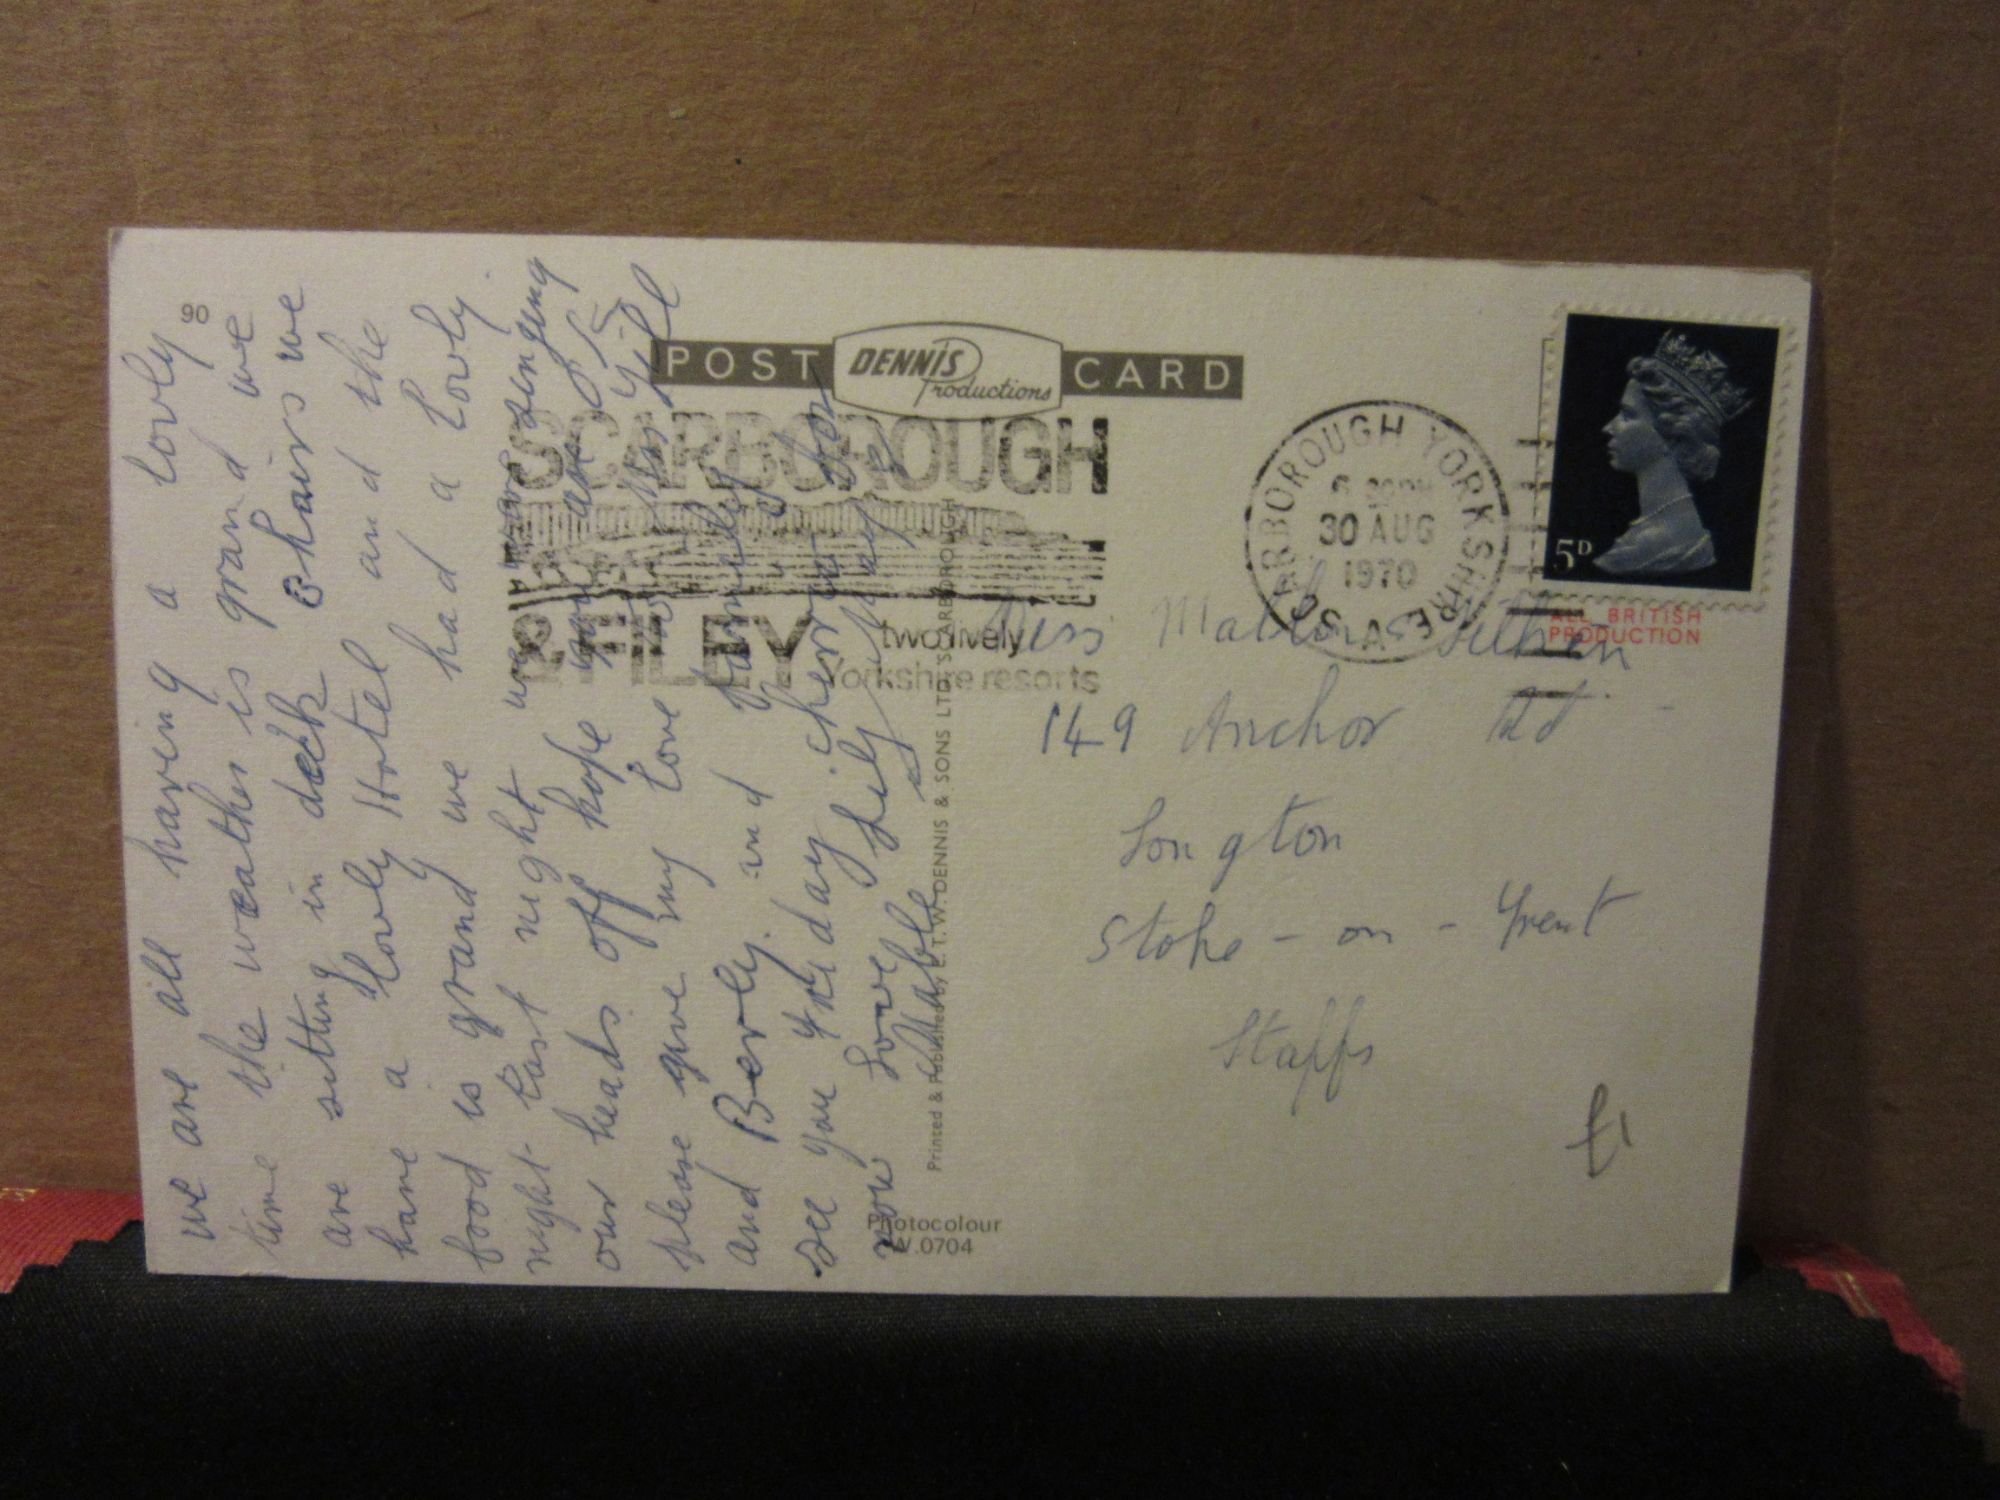 90
we are all having a lovly
time the weather is grand we
are sitting in deck chairs we
have a lovly Hotel and the
food is grand we had a lovly
night last night we were singing
our heads off hope you are O.K.
please give my love to Jill
and Berly and family
see you Friday cherrio for
now Love Lily
Mable
POST CARD
DENNIS
Productions
SCARBOROUGH
& FILEY two lively
Yorkshire resorts
SCARBOROUGH YORKSHIRE
30 AUG
1970
A
5D
ALL BRITISH
PRODUCTION
Miss
149 Anchor Rd
Longton
Stoke - on - Trent
Staffs
£1
Printed & Published by E.T.W.DENNIS & SONS LTD. SCARBOROUGH
Photocolour
W.0704